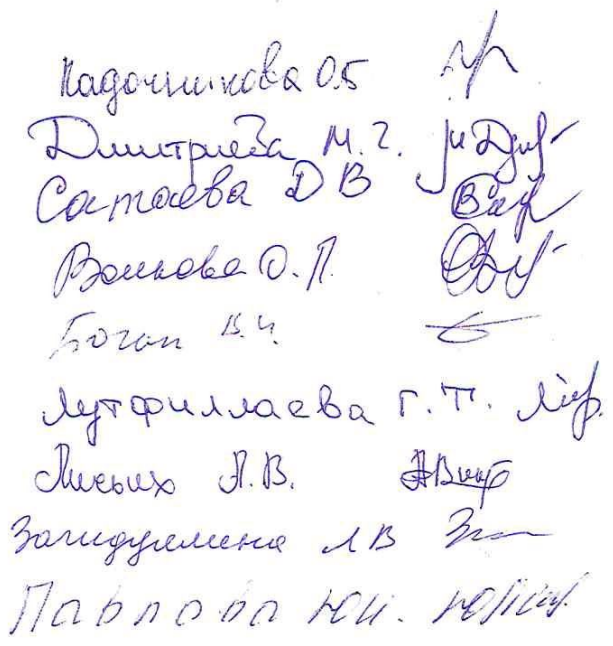 Кадочникова О.Б
Дмитриева М.Г.
Сатаева Д В
Волкова О.П.
Боган В.И.
Лутфиллаева Г.Т.
Лисьих А.В.
Загидуллина Л В
Павлова Ю.И.